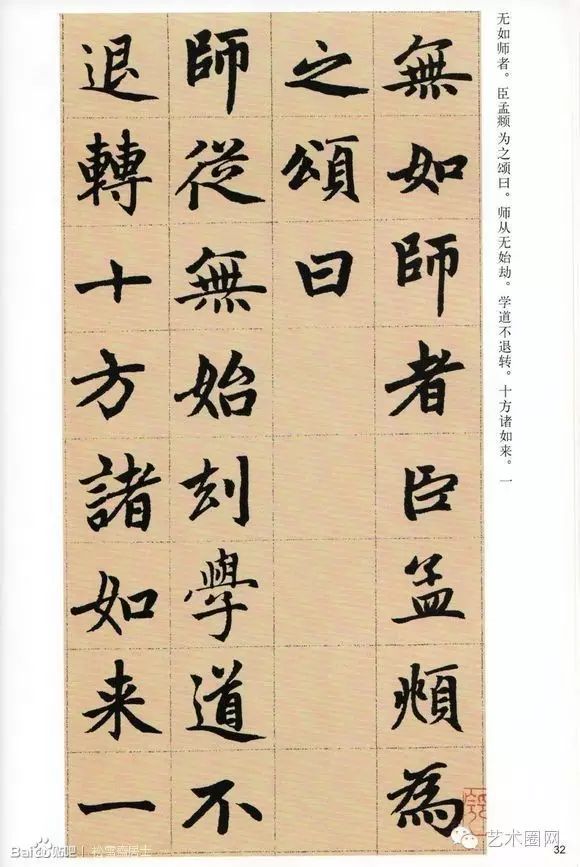 无如师者。臣孟𫖯为之颂曰。师从无始劫。学道不退转。十方诸如来。一
無如師者臣孟頫為
之頌曰
師從無始刦學道不
退轉十方諸如来一
Bai du 贴吧 | 松雪斋居士
艺术圈网
32